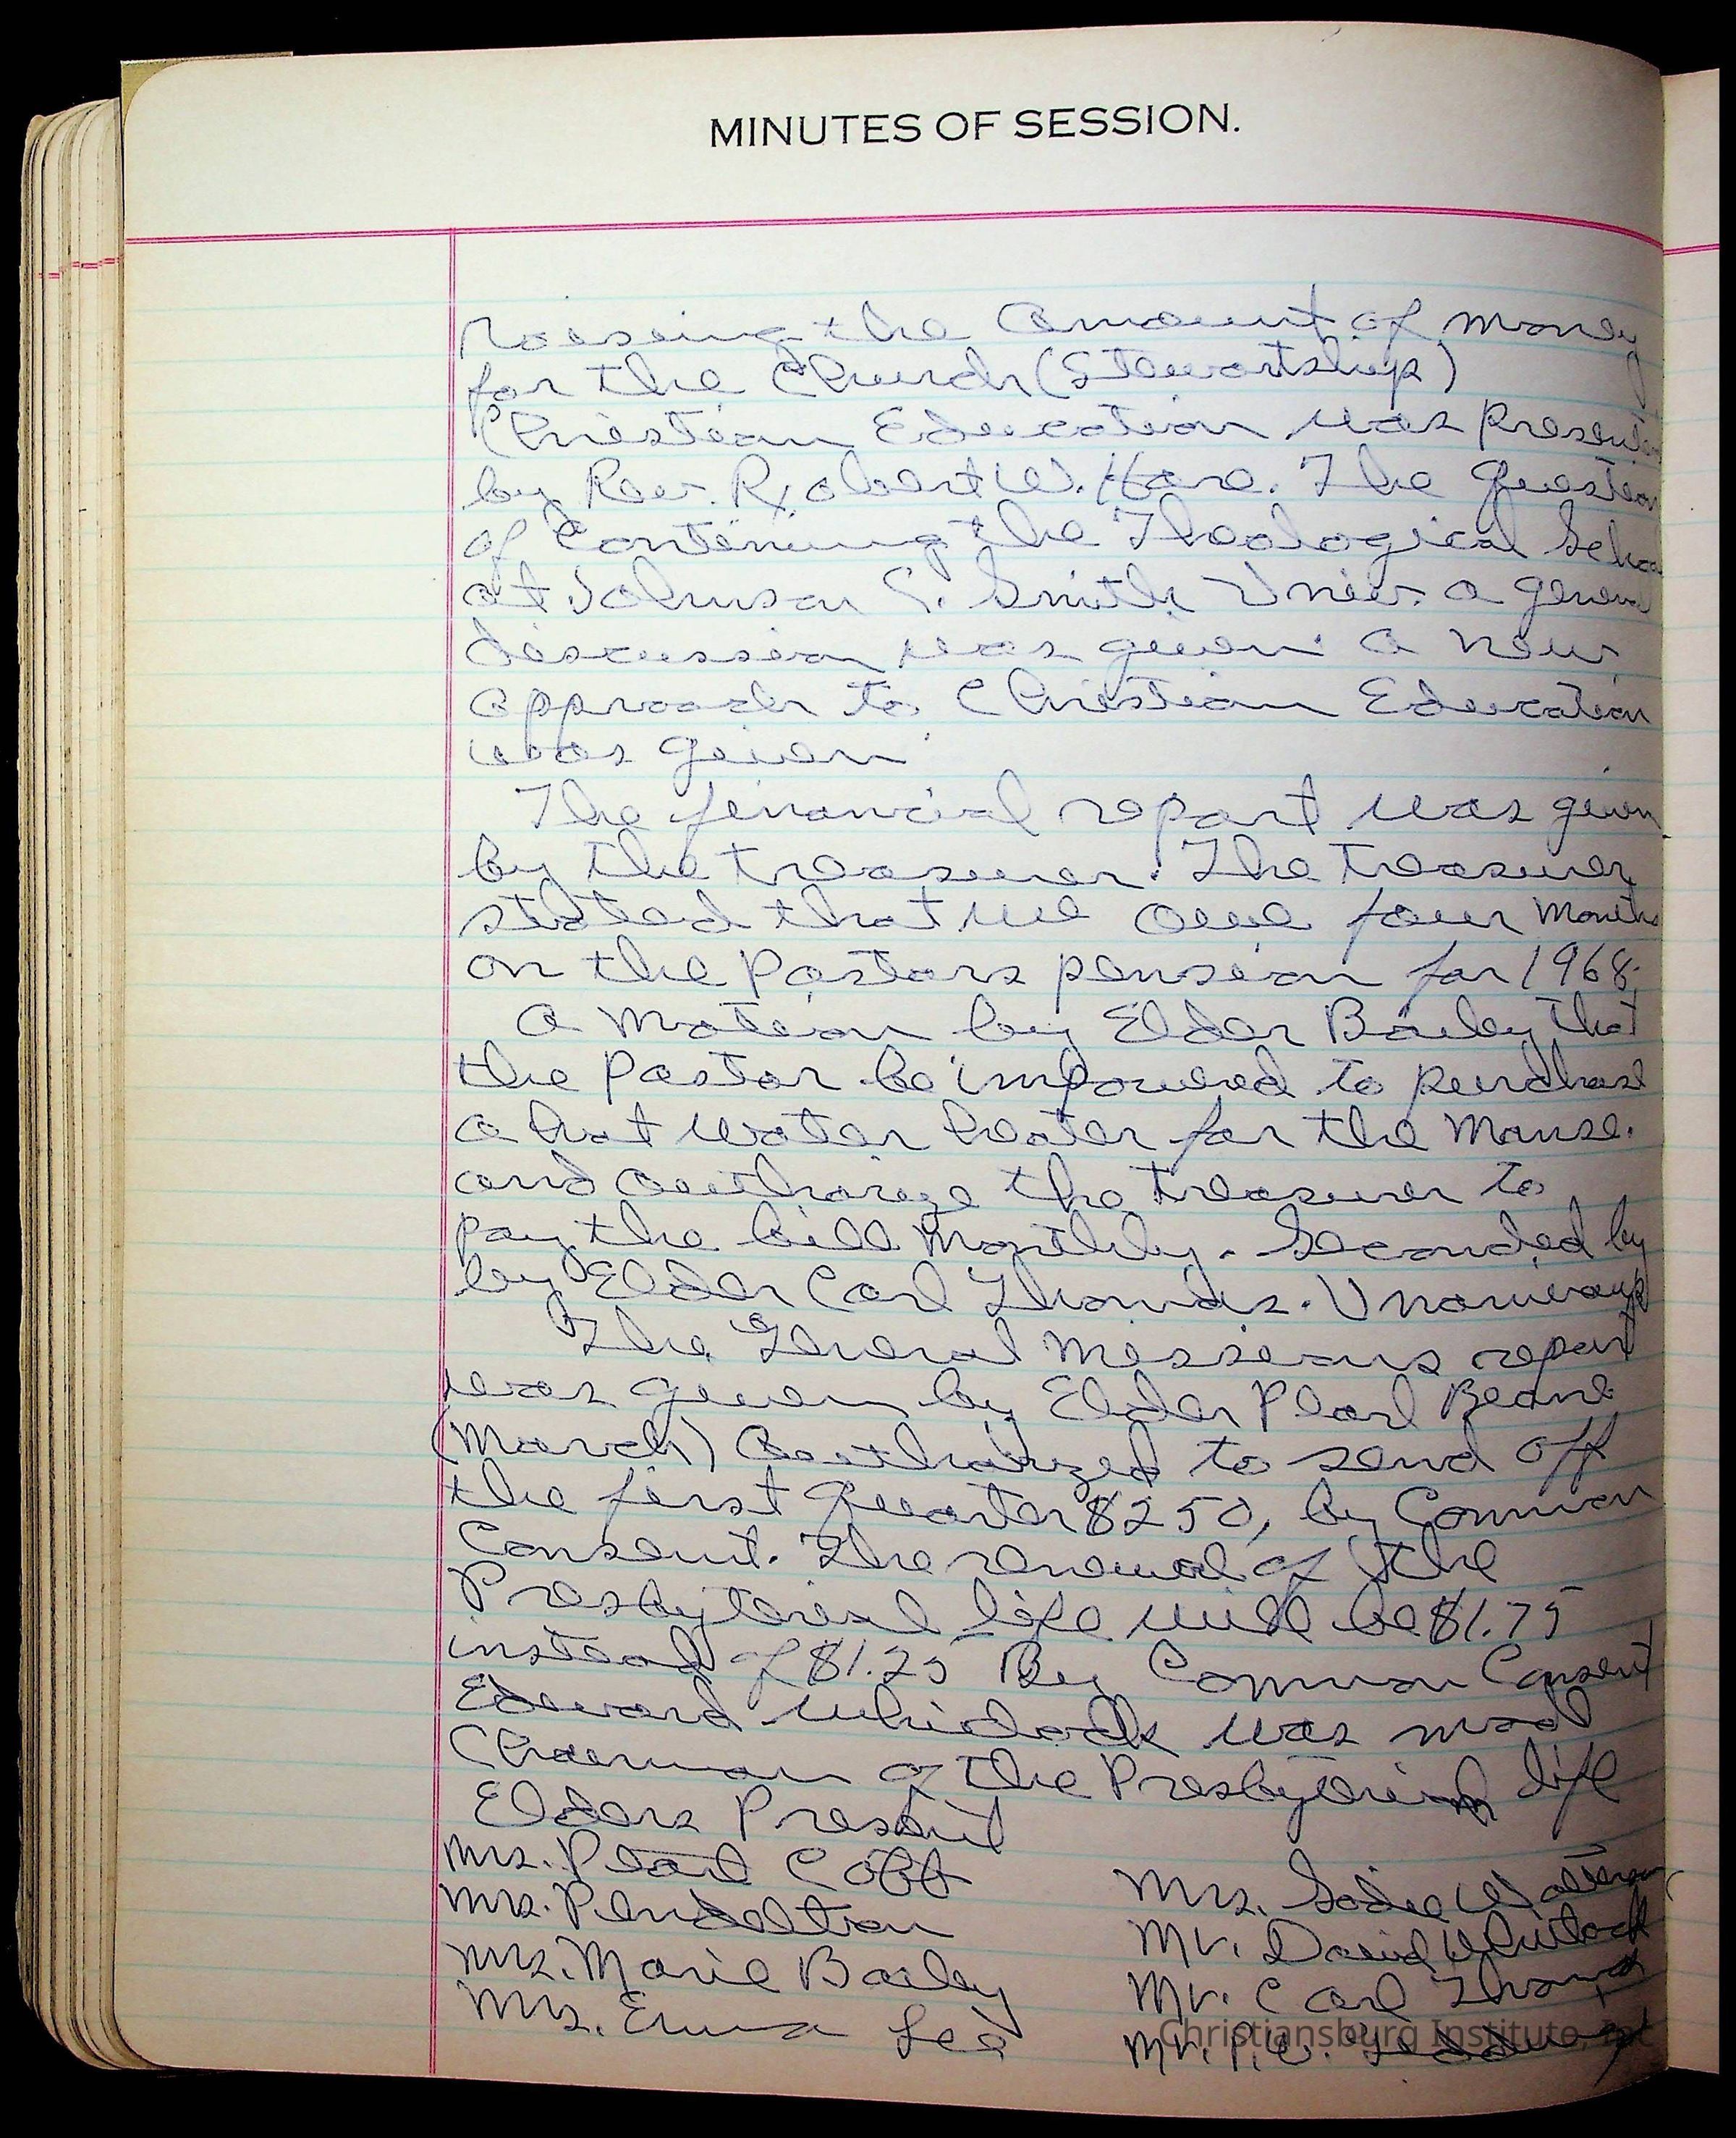 MINUTES OF SESSION.
Roeseing the amount of money
for the Church (Stewartship)
Christian Education was Presented
by Rev. Robert W. Hare. The question
of Contening the Theological School
at Johnson C. Smith Univ. a general
discussion was given. a new
approach to Christian Education
was given.
The financial report was given
by the treasurer. The treasurer
stated that we owe four months
on the Pastors pension for 1968.
a motion by Elder Bailey that
the Pastor be impowered to purchase
a hot water heater for the Manse.
and authorize the treasurer to
pay the bill monthly. Seconded by
by Elder Carl Thomas. Unanimous
The General Missions report
was given by Elder Pearl Beane
(March) Authorized to send off
the first quarter $250, by Common
Consent. The renewal of the
Presbyterial life will be $1.75
instead of $1.25 By Common Consent
Edward Whitlock was mad
Chairman of the Presbyterian life
Elders Present
Mrs. Pearl Cobb
Mrs. Sadie
Mrs. Pendelton
Mr. David Whitlock
Mrs. Marie Bailey
Mr. Carl Thomas
Mrs. Erma Lea
Mr. P.W.
Christiansburg Institute, Inc